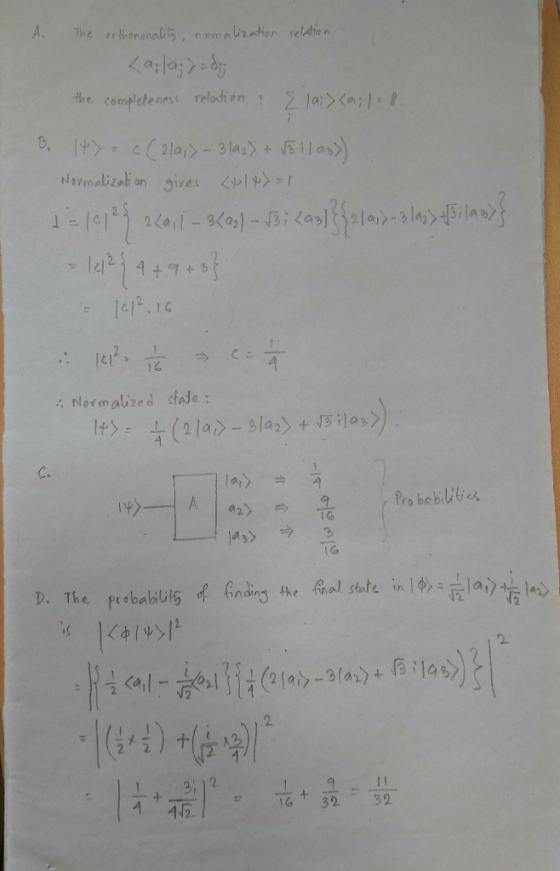 A. The orthonomality, normalization relation
⟨ai|aj⟩=δij
the completeness relation : Σi |ai⟩⟨ai| = 1.
B. |ψ⟩ = c(2|a1⟩ - 3|a2⟩ + √3 i|a3⟩)
Normalization gives ⟨ψ|ψ⟩=1
1 = |c|²{ 2⟨a1| - 3⟨a2| - √3 i ⟨a3| }{2|a1⟩ - 3|a2⟩ + √3 i|a3⟩}
= |c|² { 4 + 9 + 3 }
= |c|² . 16
∴ |c|² = 1/16 ⇒ c = 1/4
∴ Normalized state :
|ψ⟩ = 1/4 (2|a1⟩ - 3|a2⟩ + √3 i|a3⟩)
C.
|a1⟩ ⇒ 1/4
|ψ⟩— A |a2⟩ ⇒ 9/16 } Probabilities
|a3⟩ ⇒ 3/16
D. The probability of finding the final state in |ϕ⟩ = 1/√2 |a1⟩ + i/√2 |a2⟩
is |⟨ϕ|ψ⟩|²
= |{ 1/2 ⟨a1| - i/√2 ⟨a2| }{ 1/4 (2|a1⟩ - 3|a2⟩ + √3 i|a3⟩) }|²
= |(1/2 × 1/2) + (i/√2 × 3/4)|²
= | 1/4 + 3i/4√2 |² = 1/16 + 9/32 = 11/32